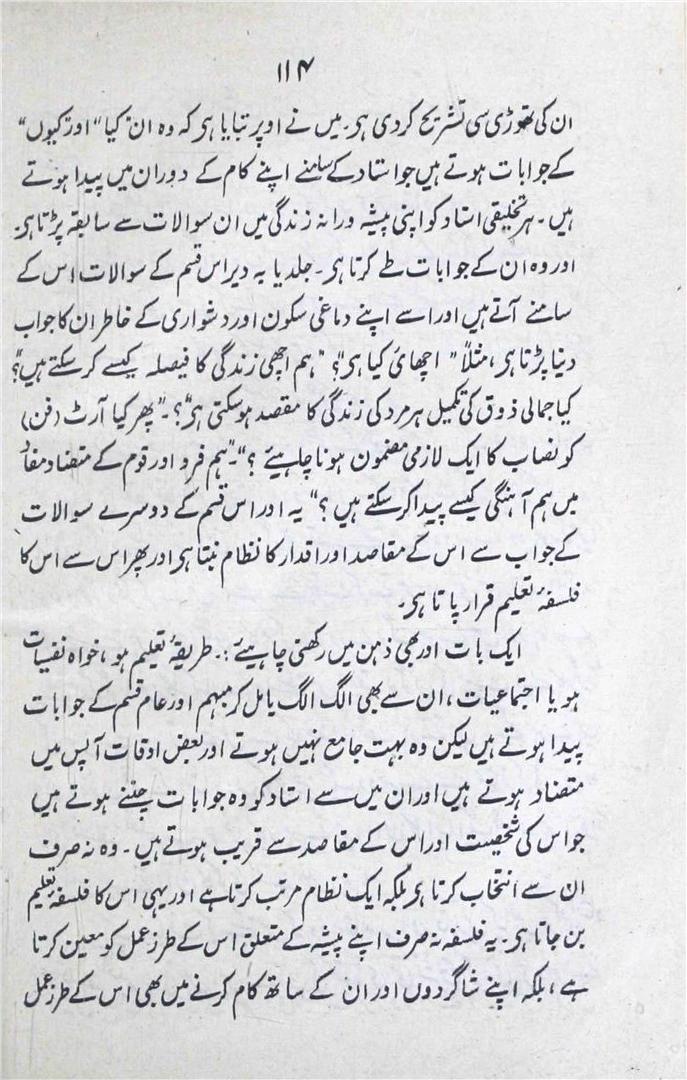 ۱۱۴
ان کی تھوڑی سی تشریح کر دی ہی۔ میں نے اوپر بتایا ہی کہ وہ ان "کیا" اور "کیوں"
کے جوابات ہوتے ہیں جو استاد کے سامنے اپنے کام کے دوران میں پیدا ہوتے
ہیں۔ ہر تخلیقی استاد کو اپنی پیشہ ورانہ زندگی میں ان سوالات سے سابقہ پڑتا ہی۔
اور وہ ان کے جوابات طے کرتا ہی۔ جلد یا بہ دیر اس قسم کے سوالات اس کے
سامنے آتے ہیں اور اسے اپنے دماغی سکون اور دشواری کے خاطر ان کا جواب
دینا پڑتا ہی، مثلاً "اچھائی کیا ہی"؟ "ہم اچھی زندگی کا فیصلہ کیسے کر سکتے ہیں"؟
کیا جمالی ذوق کی تکمیل ہر مرد کی زندگی کا مقصد ہو سکتی ہی"؟۔ "پھر کیا آرٹ (فن)
کو نصاب کا ایک لازمی مضمون ہونا چاہیئے ؟"۔ "ہم فرد اور قوم کے متضاد مفاد
میں ہم آہنگی کیسے پیدا کر سکتے ہیں ؟" یہ اور اس قسم کے دوسرے سوالات
کے جواب سے اس کے مقاصد اور اقدار کا نظام بنتا ہی اور پھر اس سے اس کا
فلسفۂ تعلیم قرار پاتا ہی۔
ایک بات اور بھی ذہن میں رکھنی چاہیئے :۔ طریقۂ تعلیم ہو، خواہ نفسیات
ہو یا اجتماعیات، ان سے بھی الگ الگ یا مل کر مبہم اور عام قسم کے جوابات
پیدا ہوتے ہیں لیکن وہ بہت جامع نہیں ہوتے اور بعض اوقات آپس میں
متضاد ہوتے ہیں اور ان میں سے استاد کو وہ جوابات چننے ہوتے ہیں
جو اس کی شخصیت اور اس کے مقاصد سے قریب ہوتے ہیں۔ وہ نہ صرف
ان سے انتخاب کرتا ہی بلکہ ایک نظام مرتب کرتا ہے اور یہی اس کا فلسفۂ تعلیم
بن جاتا ہی۔ یہ فلسفہ نہ صرف اپنے پیشہ کے متعلق اس کے طرز عمل کو معین کرتا
ہے، بلکہ اپنے شاگردوں اور ان کے ساتھ کام کرنے میں بھی اس کے طرز عمل